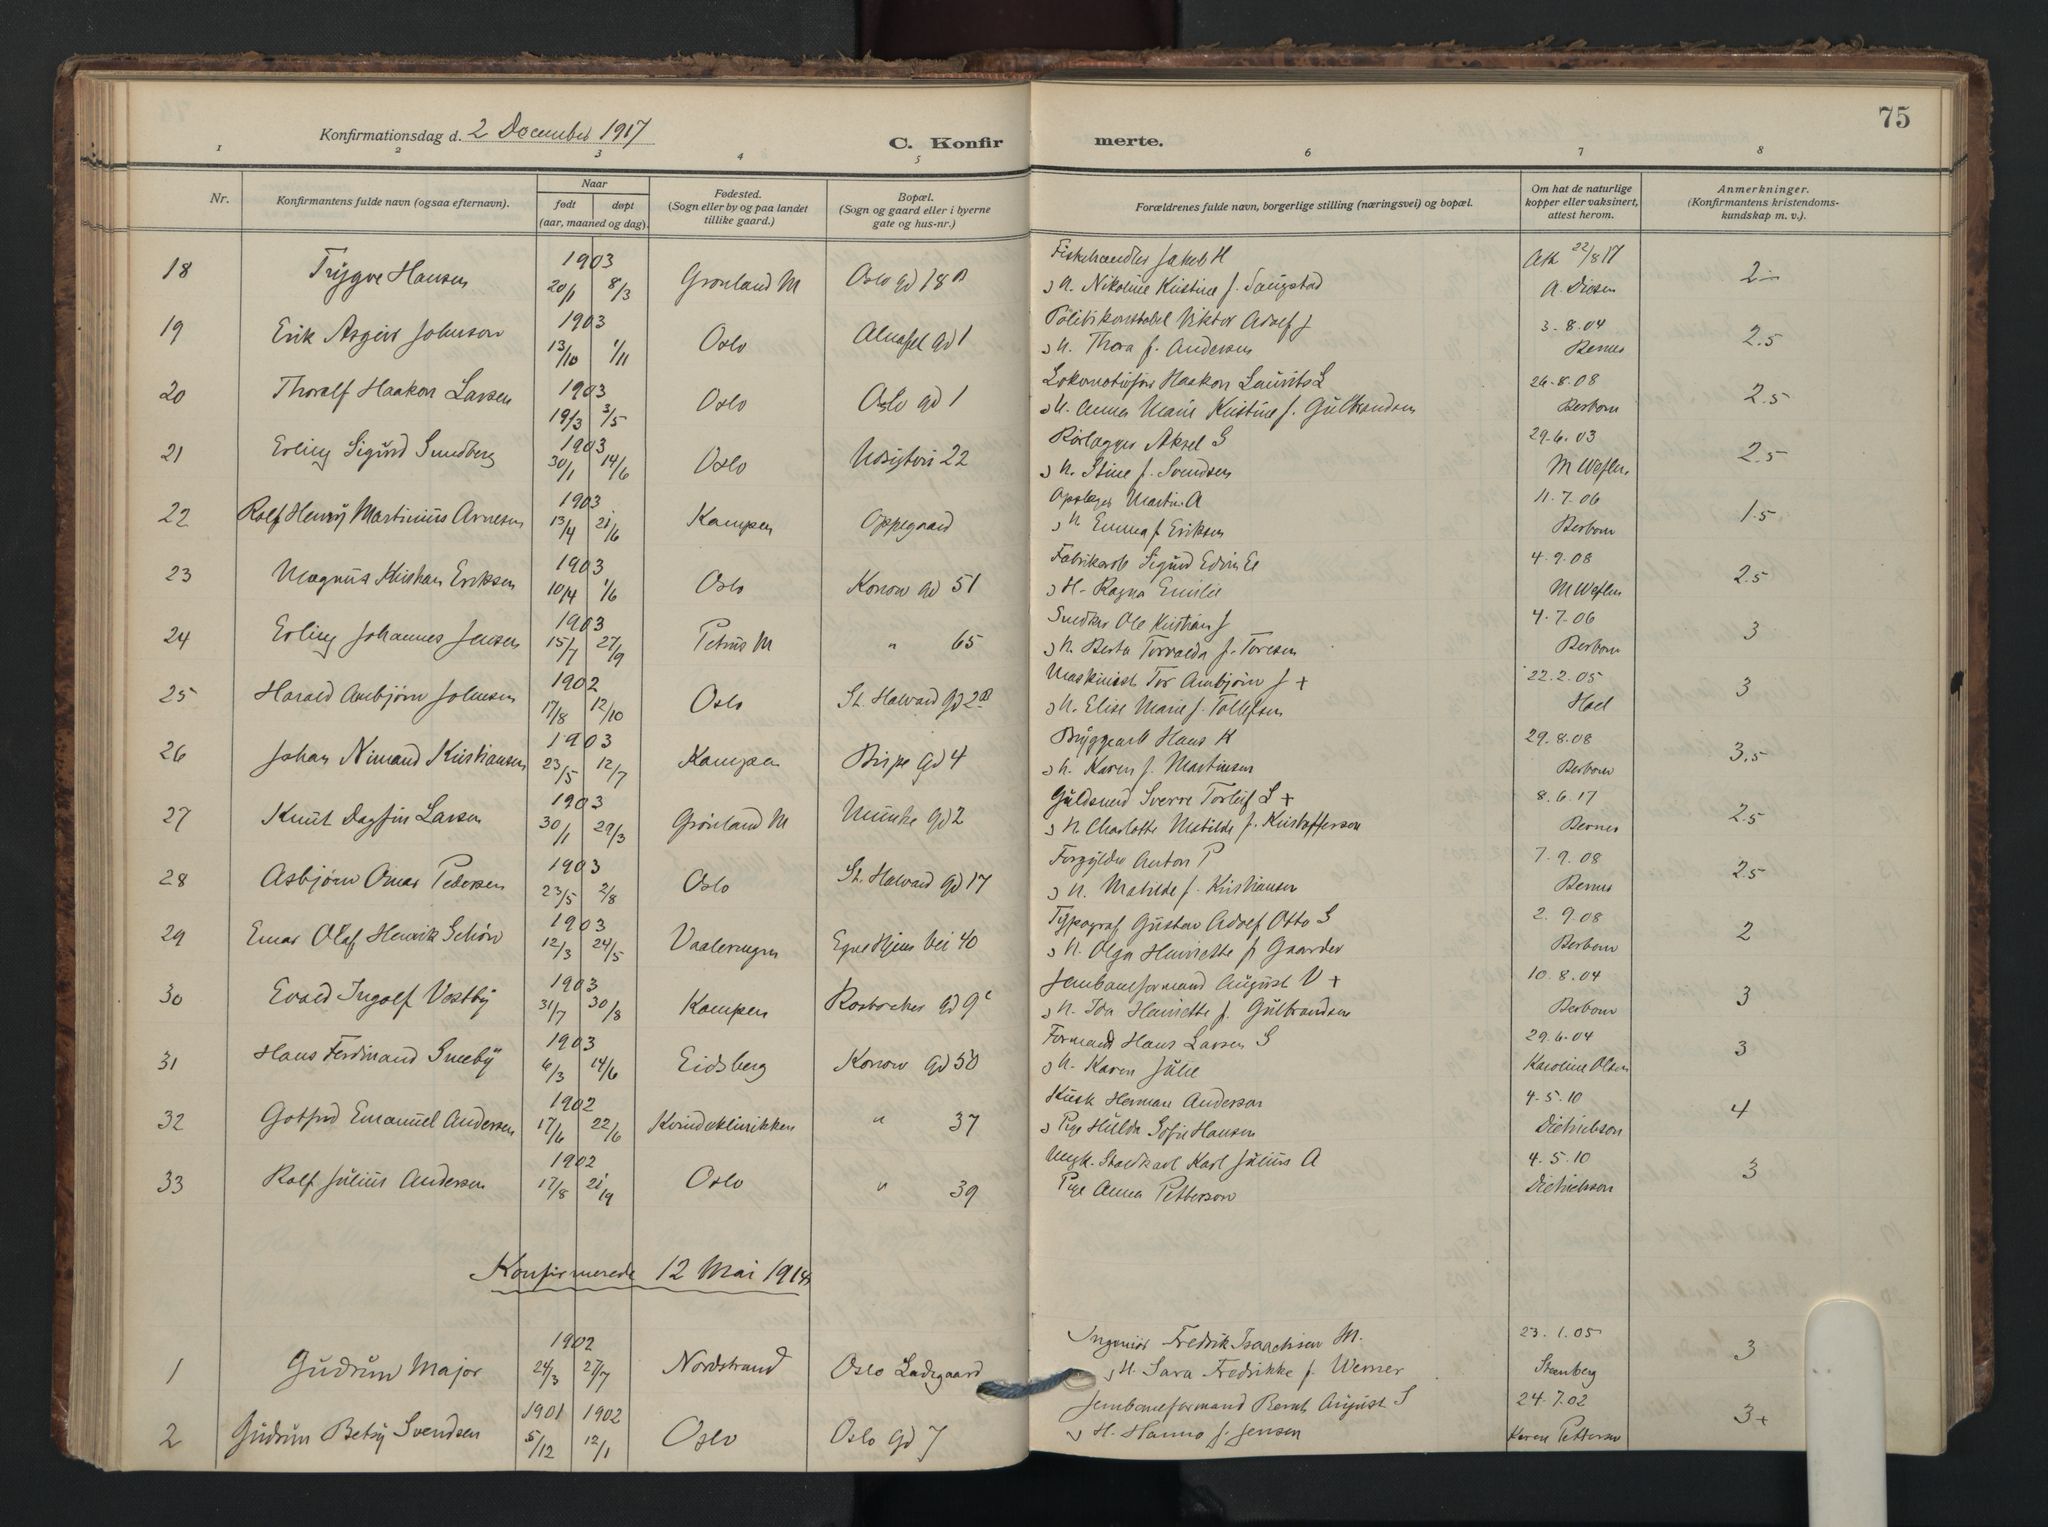 75
Konfirmationsdag d. 2 December 1917
C. Konfirmerte.
1 2 3 4 5 6 7 8
Nr. Konfirmantens fulde navn (ogsaa efternavn). Naar født døpt (aar, maaned og dag). Fødested. (Sogn eller by og paa landet tillike gaard.) Bopæl. (Sogn og gaard eller i byerne gate og hus-nr.) Forældrenes fulde navn, borgerlige stilling (næringsvei) og bopæl. Om hat de naturlige kopper eller vaksinert, attest herom. Anmerkninger. (Konfirmantens kristendoms-kundskap m. v.)
18 Trygve Hansen 1903 20/1 8/3 Grønland M Oslo gd 18 B Fiskehandler Jakob H
Nikoline Kristine f. Saugstad Att 22/8 17 A. Diesen 2
19 Erik Asgeir Johnson 1903 13/10 1/11 Oslo gd 1 Politikonstabel Viktor Adolf J
H. Thora f. Andersen 3-8.04 Berner 2.5
20 Thoralf Haakon Larsen 1903 19/3 3/5 Oslo Oslo gd 1 Lokomotivfør Haakon Laurits L
H. Anna Marie Kristine f. Gulbrandsen 26.8.08 Berbom 2.5
21 Erling Sigurd Sundberg 1903 30/1 14/6 Oslo Utsigtvei 22 Rørlægger Aksel S
H. Stine f. Svendsen 29.6.03 M Weflen 2.5
22 Rolf Henry Martinius Arnesen 1903 13/4 21/6 Kampen Oppegaard Martin A
H Emma f Eriksen 11.7.06 Berbom 1.5
23 Magnus Kristian Eriksen 1903 10/4 1/6 Oslo Konow gd 51 Fabrikarb Sigurd Edvin E
H. Ragna Emilie 4.9.08 M Weflen 2.5
24 Erling Johannes Jensen 1903 15/7 27/9 Petrus M " 65 Snedker Ole Kristian J
H. Berta Torvalda f. Toresen 4.7.06 Berbom 3
25 Harald Arnbjørn Johnsen 1902 17/8 12/10 Oslo St. Halvard gd 2 B Maskinist Tor Arnbjørn J +
H. Elise Marie f. Tollefsen 22.2.05 Hoel 3
26 Johan Nimand Kristiansen 1903 23/5 12/7 Kampen Bispe gd 4 Bryggearb Hans K
H. Karen f. Martinsen 29.8.08 Berbom 3.5
27 Knut Dagfin Larsen 1903 30/1 29/3 Grønland M Munke gd 2 Guldsmed Sverre Torleif L +
H Charlotte Matilde f. Kristofferson 8.6.17 Berner 2.5
28 Asbjørn Omar Pedersen 1903 23/5 2/8 Oslo St. Halvard gd 17 Forgylder Anton P
H. Matilde f. Kristiansen 7.9.08 Berner 2.5
29 Einar Olaf Henrik Schøn 1903 12/3 24/5 Vaalerengen Egne Hjem vei 40 Typograf Gustav Adolf Otto S
H. Olga Henriette f. Gaarder 2.9.08 Berbom 2
30 Evald Ingolf Vestby 1903 31/7 30/8 Kampen gd 9 c Jernbaneformand August V +
H. Ida Henriette f. Gulbrandsen 10.8.04 Berbom 3
31 Hans Ferdinand Smeby 1903 6/3 14/6 Eidsberg Konow gd 50 Formand Hans Larsen S
H. Karen Julie 29.6.04 Karoline Olsen 3
32 Gotfred Emanuel Andersen 1902 17/6 22/6 Kvindeklinikken " 37 Kusk Herman Anderson
Pige Hulda Sofie Hansen 4.5.10 Dietrichson 4
33 Rolf Julius Andersen 1902 17/8 21/9 Oslo " 39 Ungk. Staldkarl Karl Julius A
Pige Anna Petterson 4.5.10 Dietrichson 3
Konfirmerede 12 Mai 1918
1 Gudrun Major 1902 24/3 27/7 Nordstrand Oslo Ladegaard Ingeniør Fredrik Isaachsen M.
H. Sara Fredrikke f. Werner 23.1.05 Steenberg 3
2 Gudrun Betsy Svendsen 1901 5/12 1902 12/1 Oslo Oslo gd 7 Jernbaneformand Bernt August S
H. Hanna f. Jensen 24.7.02 Karen Pettersen 3+